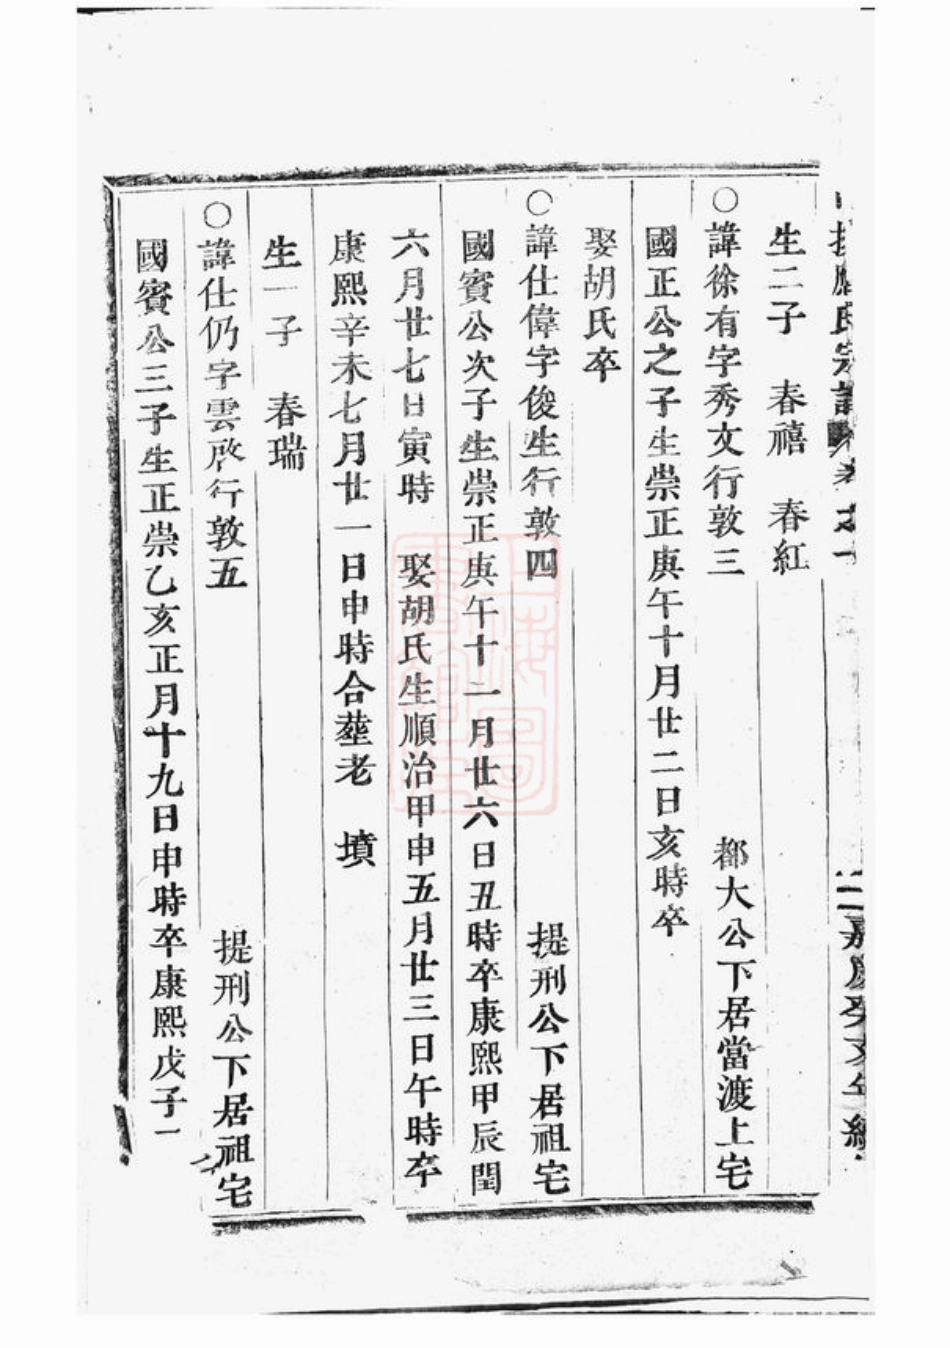 氏宗譜
生二子 春禧 春紅
○諱徐有字秀文行敦三 都大公下居當渡上宅
國正公之子生崇正庚午十月廿二日亥時卒
娶胡氏卒
○諱仕偉字俊生行敦四 提刑公下居祖宅
國賓公次子生崇正庚午十二月廿六日丑時卒康熙甲辰閏
六月廿七日寅時 娶胡氏生順治甲申五月廿三日午時卒
康熙辛未七月廿一日申時合塟老 墳
生一子 春瑞
○諱仕仍字雲啟行敦五 提刑公下居祖宅
國賓公三子生正崇乙亥正月十九日申時卒康熙戊子一